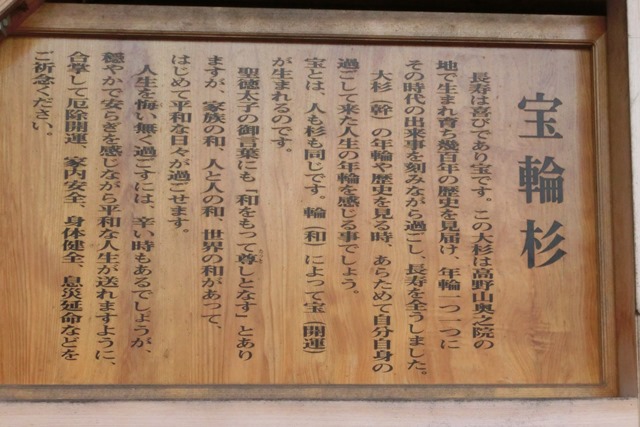 宝輪杉
長寿は喜びであり宝です。この大杉は高野山奥之院の
地で生まれ育ち幾百年の歴史を見届け、年輪一つ一つに
その時代の出来事を刻みながら過ごし、長寿を全うしました。
大杉（幹）の年輪や歴史を見る時、あらためて自分自身の
過ごして来た人生の年輪を感じる事でしょう。
宝とは、人も杉も同じです。輪（和）によって宝（開運）
が生まれるのです。
聖徳太子の御言葉にも「和をもつて尊しとなす」とあり
ますが、家族の和、人と人の和、世界の和があって、
はじめて平和な日々が過ごせます。
人生を悔い無く過ごすには、辛い時もあるでしょうが、
穏やかで安らぎを感じながら平和な人生が送れますように、
合掌して厄除開運、家内安全、身体健全、息災延命などを
ご祈念ください。